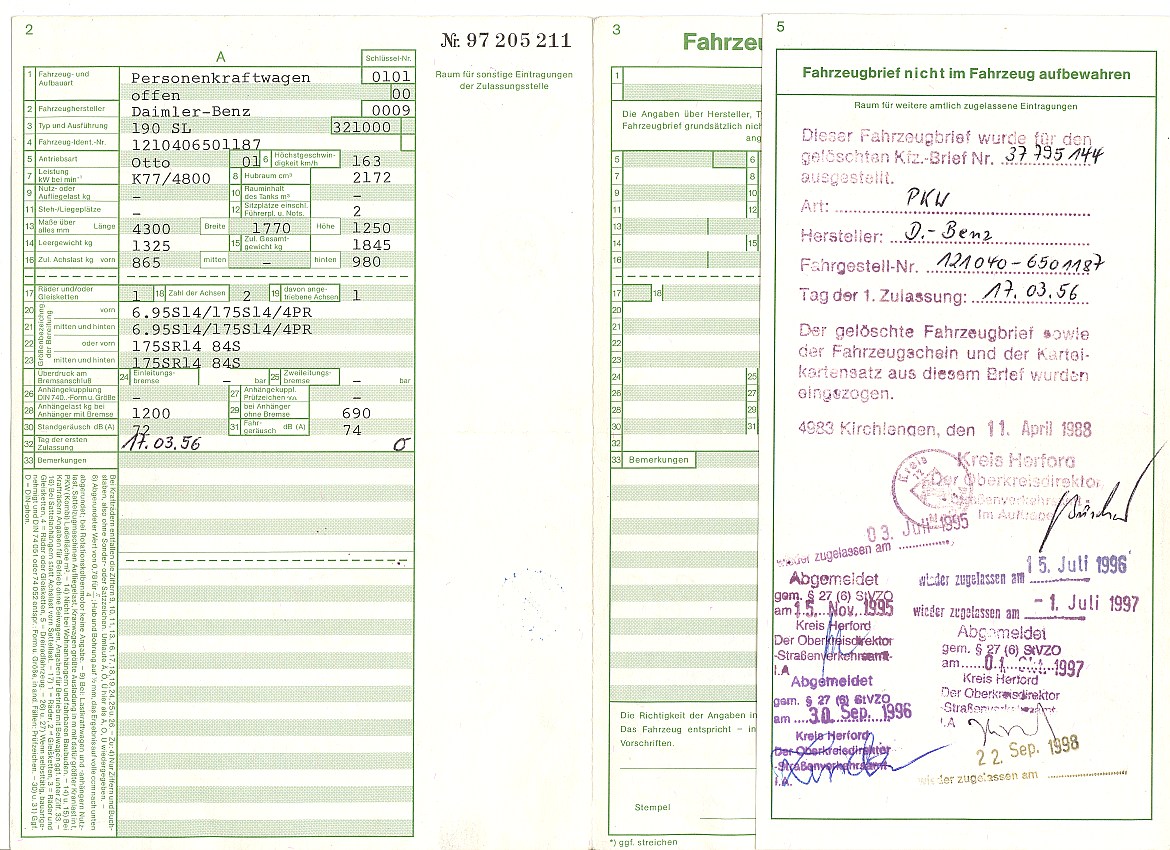 2
A
Schlüssel-Nr.
1 Fahrzeug- und Aufbauart Personenkraftwagen 0101
offen 00
2 Fahrzeughersteller Daimler-Benz 0009
3 Typ und Ausführung 190 SL 321000
4 Fahrzeug-Ident.-Nr. 1210406501187
5 Antriebsart Otto 01 6 Höchstgeschwindigkeit km/h 163
7 Leistung kW bei min⁻¹ K77/4800 8 Hubraum cm³ 2172
9 Nutz- oder Aufliegelast kg – 10 Rauminhalt des Tanks m³ –
11 Steh-/Liegeplätze – 12 Sitzplätze einschl. Führerpl. u. Nots. 2
13 Maße über alles mm Länge 4300 Breite 1770 Höhe 1250
14 Leergewicht kg 1325 15 Zul. Gesamtgewicht kg 1845
16 Zul. Achslast kg vorn 865 mitten – hinten 980
17 Räder und/oder Gleisketten 1 18 Zahl der Achsen 2 19 davon angetriebene Achsen 1
20 vorn 6.95S14/175S14/4PR
21 mitten und hinten 6.95S14/175S14/4PR
22 oder vorn 175SR14 84S
23 mitten und hinten 175SR14 84S
Überdruck am Bremsanschluß 24 Einleitungsbremse – bar 25 Zweileitungsbremse – bar
26 Anhängekupplung DIN 740.. -Form u. Größe – 27 Anhängekuppl. Prüfzeichen –
28 Anhängelast kg bei Anhänger mit Bremse 1200 29 bei Anhänger ohne Bremse 690
30 Standgeräusch dB (A) 72 31 Fahrgeräusch dB (A) 74
32 Tag der ersten Zulassung 17.03.56 0
33 Bemerkungen
Nr. 97 205 211
Raum für sonstige Eintragungen
der Zulassungsstelle
3
Fahrze
1
Die Angaben über Hersteller, T
Fahrzeugbrief grundsätzlich nic
5 6
7 8
9 10
11 12
13
14 15
16
17 18
20
21
22
23
24 25
26
28
30 31
32
33 Bemerkungen
Die Richtigkeit der Angaben in
Das Fahrzeug entspricht – in
Vorschriften.
Stempel
*) ggf. streichen
5
Fahrzeugbrief nicht im Fahrzeug aufbewahren
Raum für weitere amtlich zugelassene Eintragungen
Dieser Fahrzeugbrief wurde für den
gelöschten Kfz.-Brief Nr. 37795144
ausgestellt.
Art: PKW
Hersteller: D.-Benz
Fahrgestell-Nr. 121040-6501187
Tag der 1. Zulassung: 17.03.56
Der gelöschte Fahrzeugbrief sowie
der Fahrzeugschein und der Kartei-
kartensatz aus diesem Brief wurden
eingezogen.
4983 Kirchlengern, den 11. April 1988
Kreis Herford
Der Oberkreisdirektor
Im Auftrage
03. Juli 1995
wieder zugelassen am
Abgemeldet
gem. § 27 (6) StVZO
am 15. Nov. 1995
Kreis Herford
Der Oberkreisdirektor
-Straßenverkehrsamt-
I.A
wieder zugelassen am 15. Juli 1996
Abgemeldet
gem. § 27 (6) StVZO
am 30. Sep. 1996
Kreis Herford
Der Oberkreisdirektor
-Straßenverkehrsamt-
I.A.
wieder zugelassen am -1. Juli 1997
Abgemeldet
gem. § 27 (6) StVZO
am 01. Okt. 1997
Kreis Herford
Der Oberkreisdirektor
-Straßenverkehrsamt
I.A
22. Sep. 1998
wieder zugelassen am